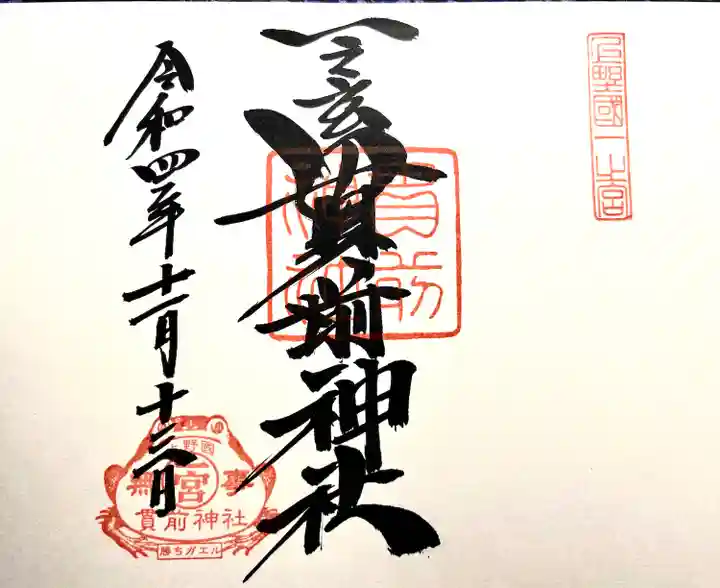 上野國一之宮
一之宮貫前神社
貫前神社
令和四年十一月十三日
上野國
一宮
無事
貫前神社
勝ちガエル